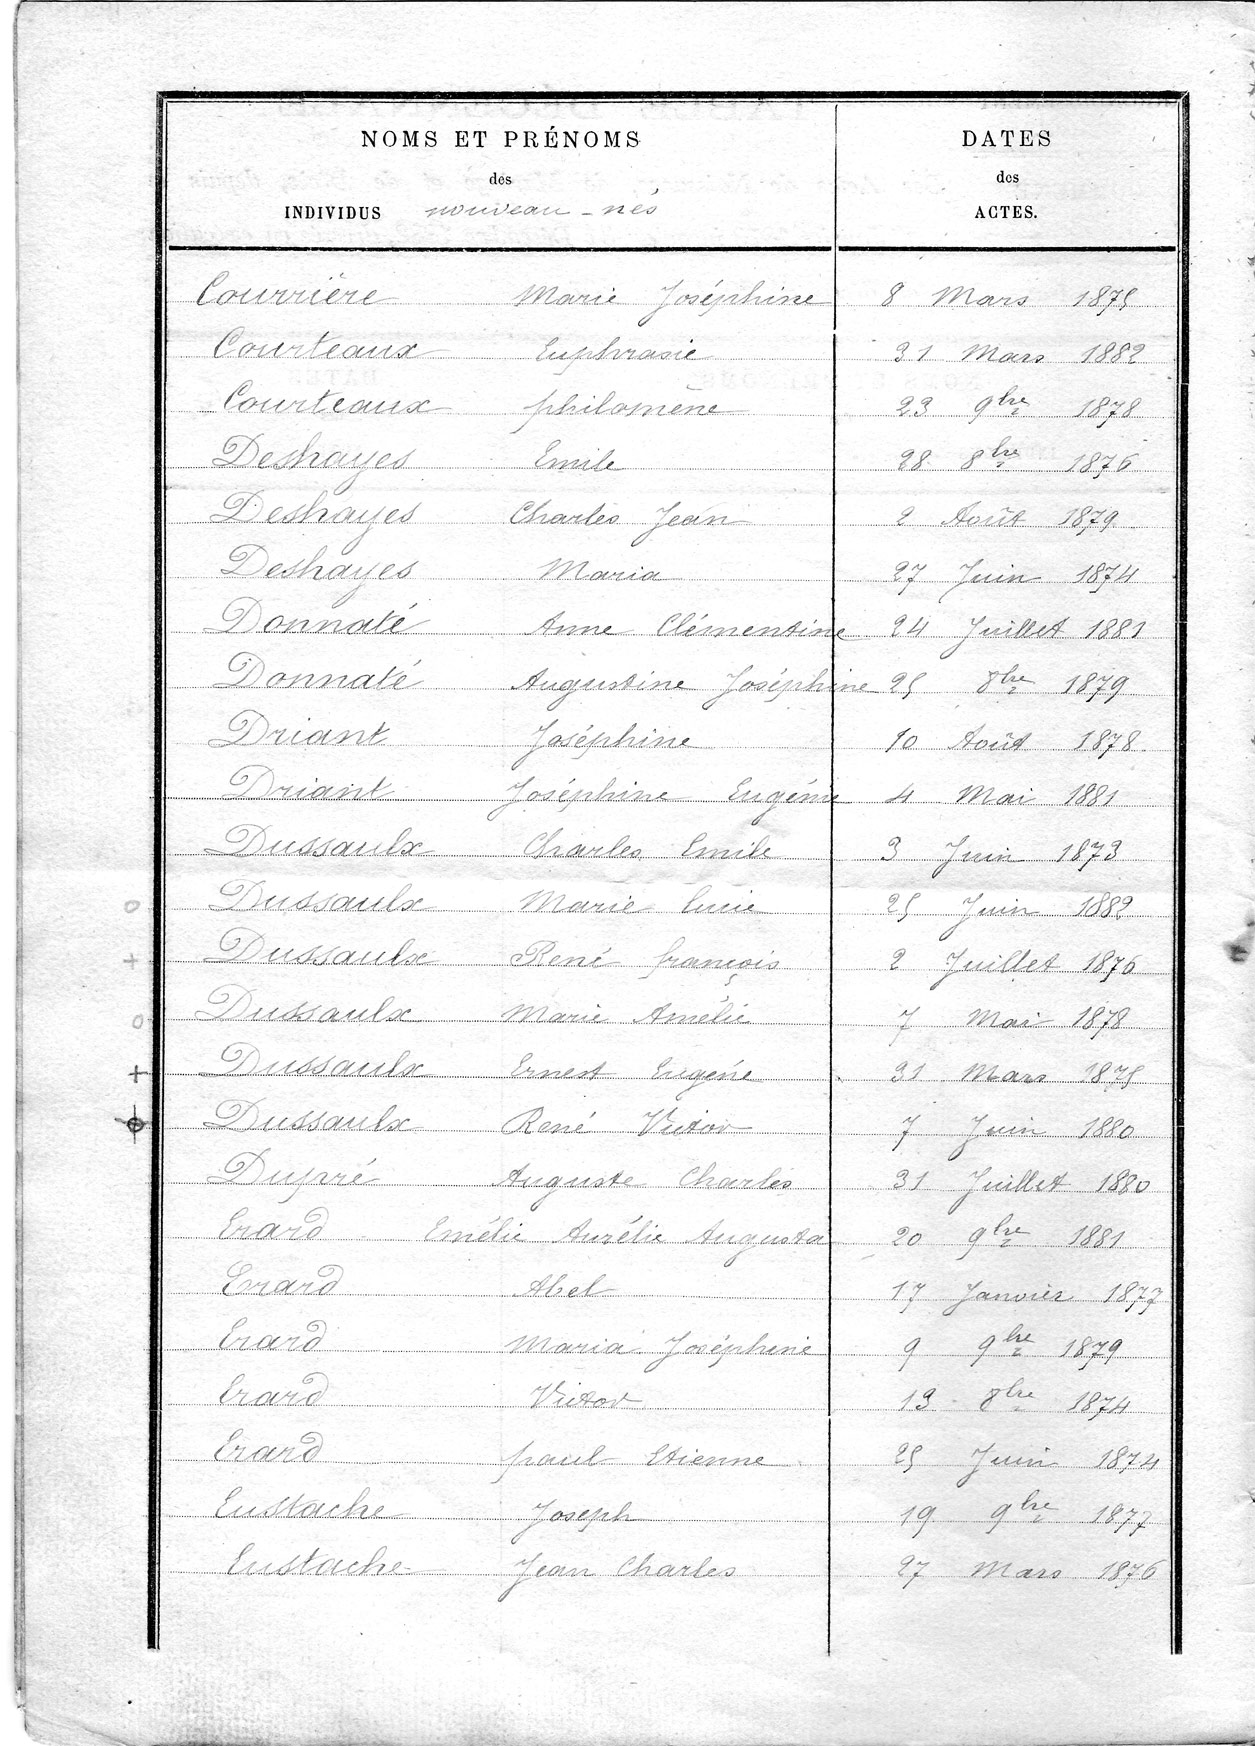 NOMS ET PRÉNOMS
des
INDIVIDUS nouveau-nés
DATES
des
ACTES.
Courrière Marie Joséphine 8 Mars 1875
Courteaux Euphrasie 31 Mars 1882
Courteaux philomène 23 9bre 1878
Deshayes Emile 28 8bre 1876
Deshayes Charles Jean 2 Août 1879
Deshayes Maria 27 Juin 1874
Donnaté Anne Clémentine 24 Juillet 1881
Donnaté Augustine Joséphine 25 8bre 1879
Driant Joséphine 10 Août 1878
Driant Joséphine Eugénie 4 Mai 1881
Dussaulx Charles Emile 3 Juin 1873
Dussaulx Marie Lucie 25 Juin 1882
Dussaulx René françois 2 Juillet 1876
Dussaulx Marie Amélie 7 Mai 1878
Dussaulx Ernest Eugène 31 Mars 1875
Dussaulx René Victor 7 Juin 1880
Dupré Auguste Charles 31 Juillet 1880
Erard Emélie Aurélie Augusta 20 9bre 1881
Erard Abel 17 Janvier 1877
Erard Maria Joséphine 9 9bre 1879
Erard Victor 13 8bre 1874
Erard paul Etienne 25 Juin 1874
Eustache Joseph 19 9bre 1877
Eustache Jean Charles 27 Mars 1876